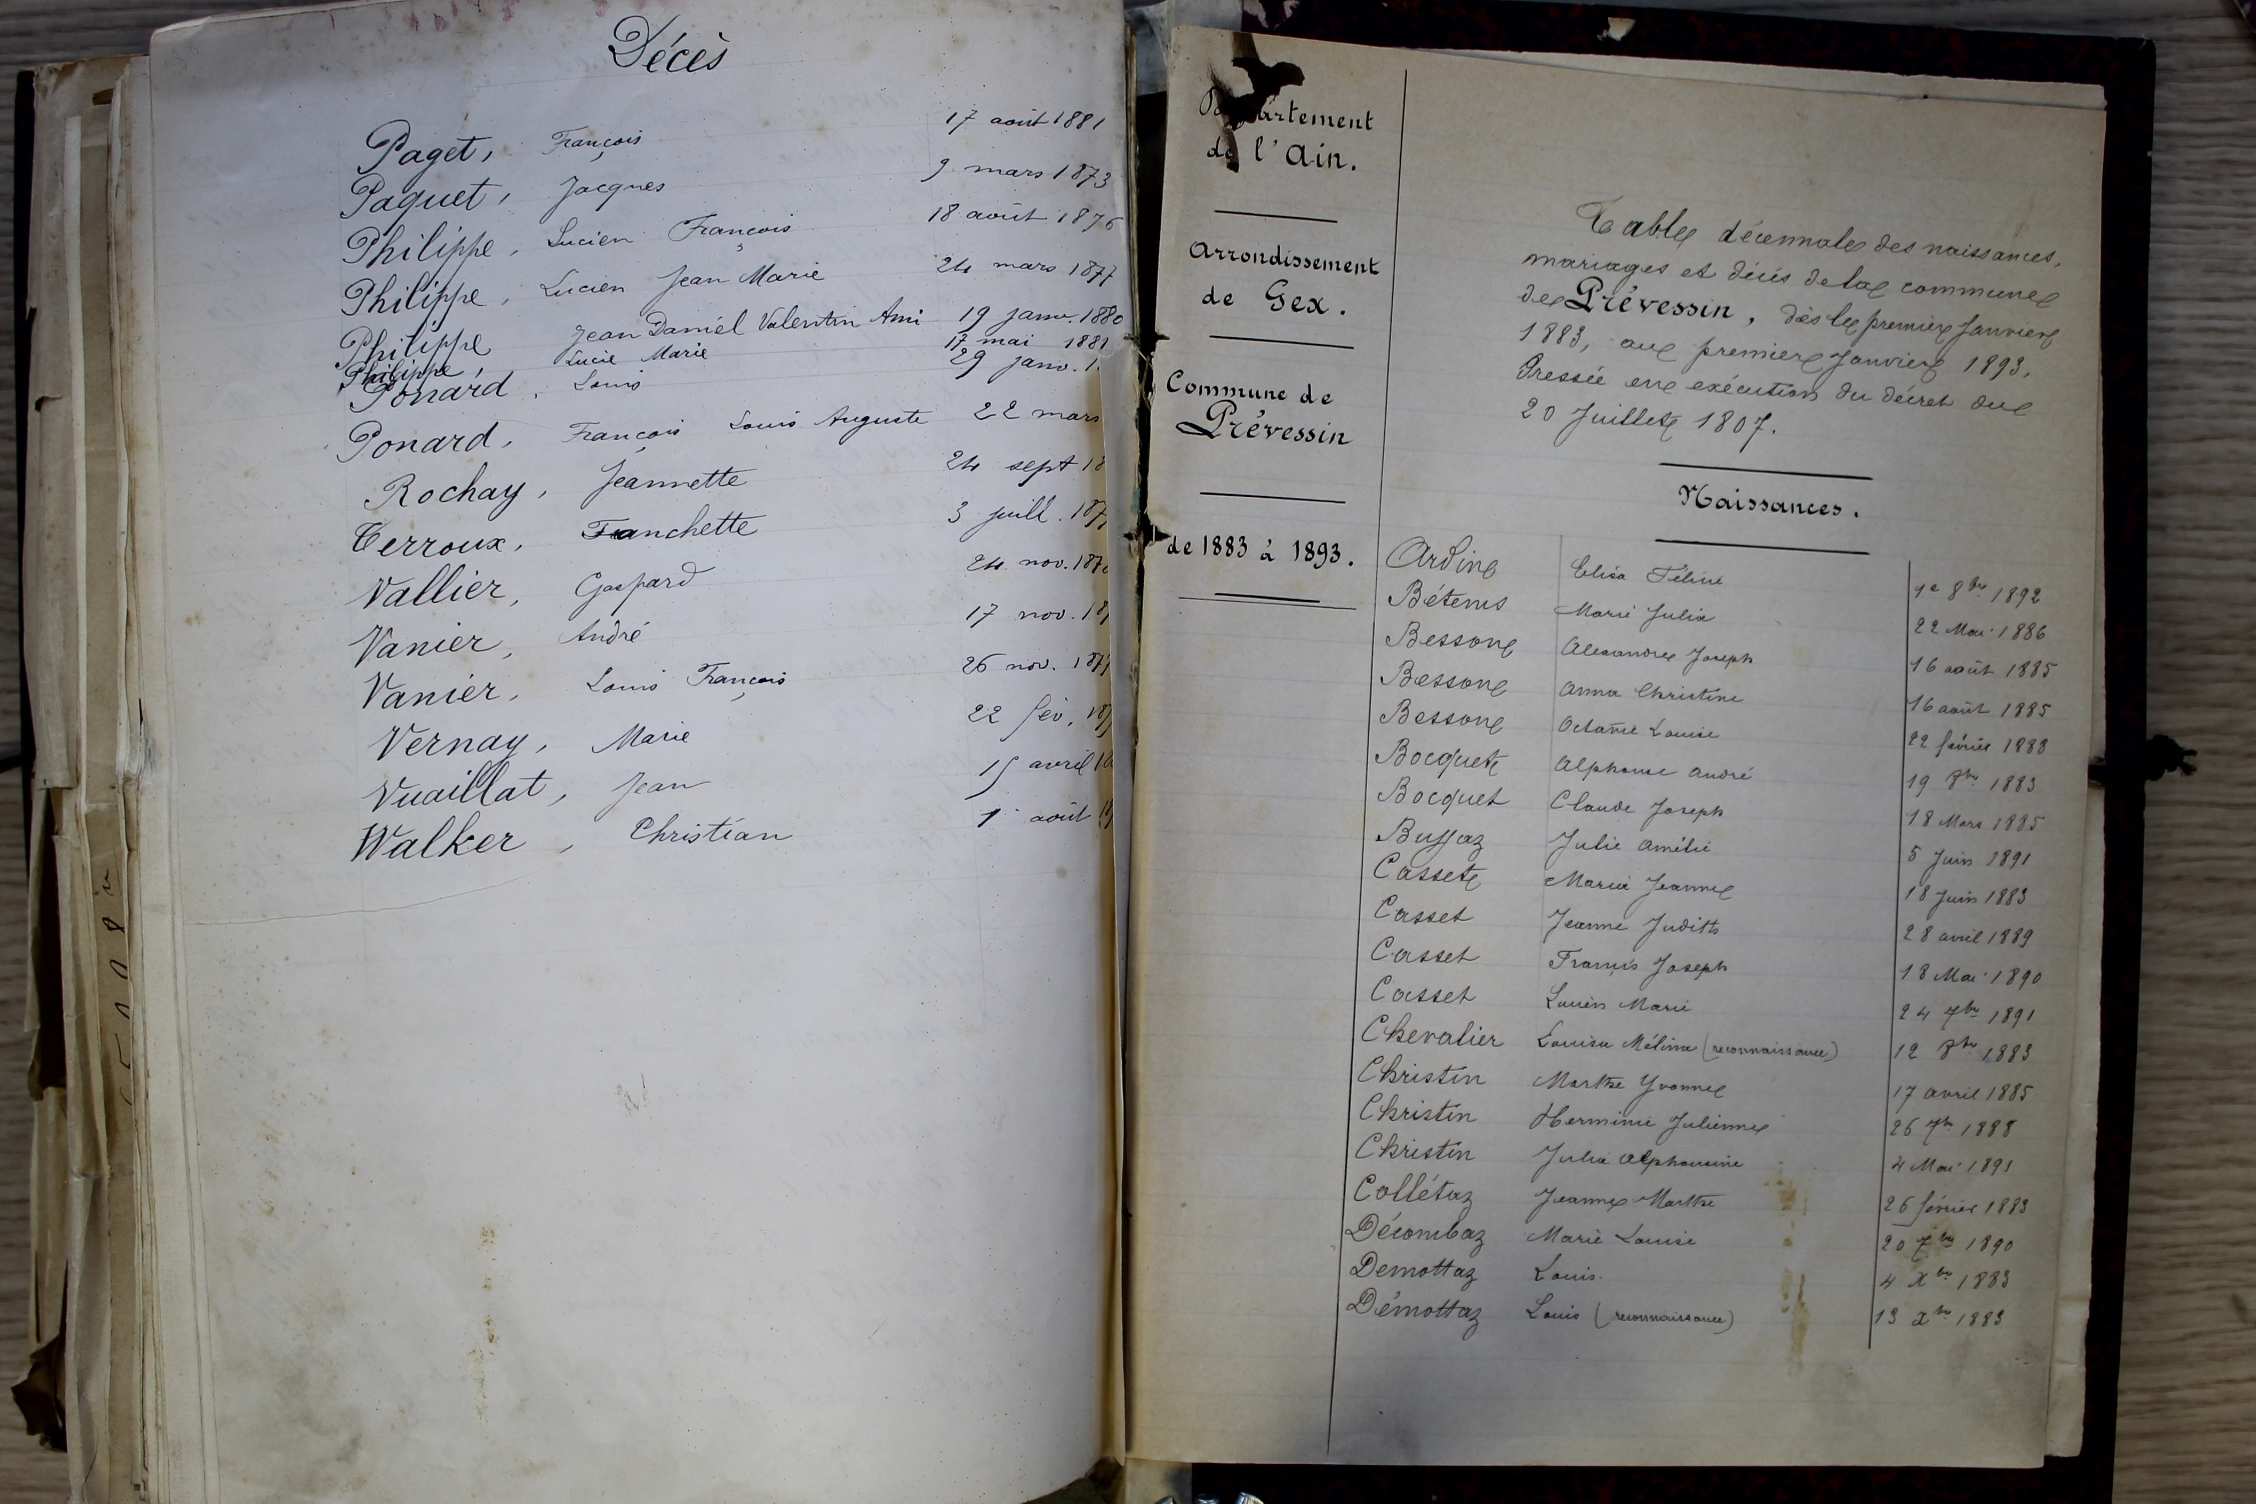 Décès
Paget, François 17 août 1881
Paquet, Jacques 9 mars 1873
Philippe, Lucien François 18 août 1876
Philippe, Lucien Jean Marie 24 mars 1877
Philippe Jean Daniel Valentin Ami 19 janv. 1880
Philippe, Lucie Marie 17 mai 1881
Ponard, Louis 29 janv. 1
Ponard, François Louis Auguste 22 mars
Rochay, Jeannette 24 sept 18
Terroux, Franchette 3 juill. 187
Vallier, Gaspard 24 nov. 187
Vanier, André 17 nov. 18
Vanier, Louis François 26 nov. 187
Vernay, Marie 22 fév. 18
Vuaillat, Jean 15 avril 18
Walker, Christian 1 août
Département
de l'Ain.
Arrondissement
de Gex.
Commune de
Prévessin
de 1883 à 1893.
Table décennale des naissances,
mariages et décès de la commune
de Prévessin, dès le premier Janvier
1883, au premier Janvier 1893.
Dressée en exécution du décret du
20 Juillet 1807.
Naissances.
Ardin Elisa Féline 1e 8bre 1892
Bétems Marie Julia 22 Mai 1886
Besson Alexandre Joseph 16 août 1885
Besson Anna Christine 16 août 1885
Besson Octavie Louise 22 février 1888
Bocquet Alphonse André 19 8bre 1883
Bocquet Claude Joseph 18 Mars 1885
Bussaz Julie Amélie 5 Juin 1891
Casset Maria Jeanne 18 Juin 1883
Casset Jeanne Judith 28 avril 1889
Casset Francis Joseph 18 Mai 1890
Casset Lucien Marie 24 7bre 1891
Chevalier Louisa Mélina (reconnaissance) 12 8bre 1883
Christin Marthe Yvonne 17 avril 1885
Christin Herminie Julienne 26 7bre 1888
Christin Julia Alphonsine 4 Mai 1891
Collétaz Jeanne Marthe 26 février 1883
Décombaz Marie Louise 20 7bre 1890
Demottaz Louis. 4 Xbre 1883
Démottaz Louis (reconnaissance) 13 Xbre 1883